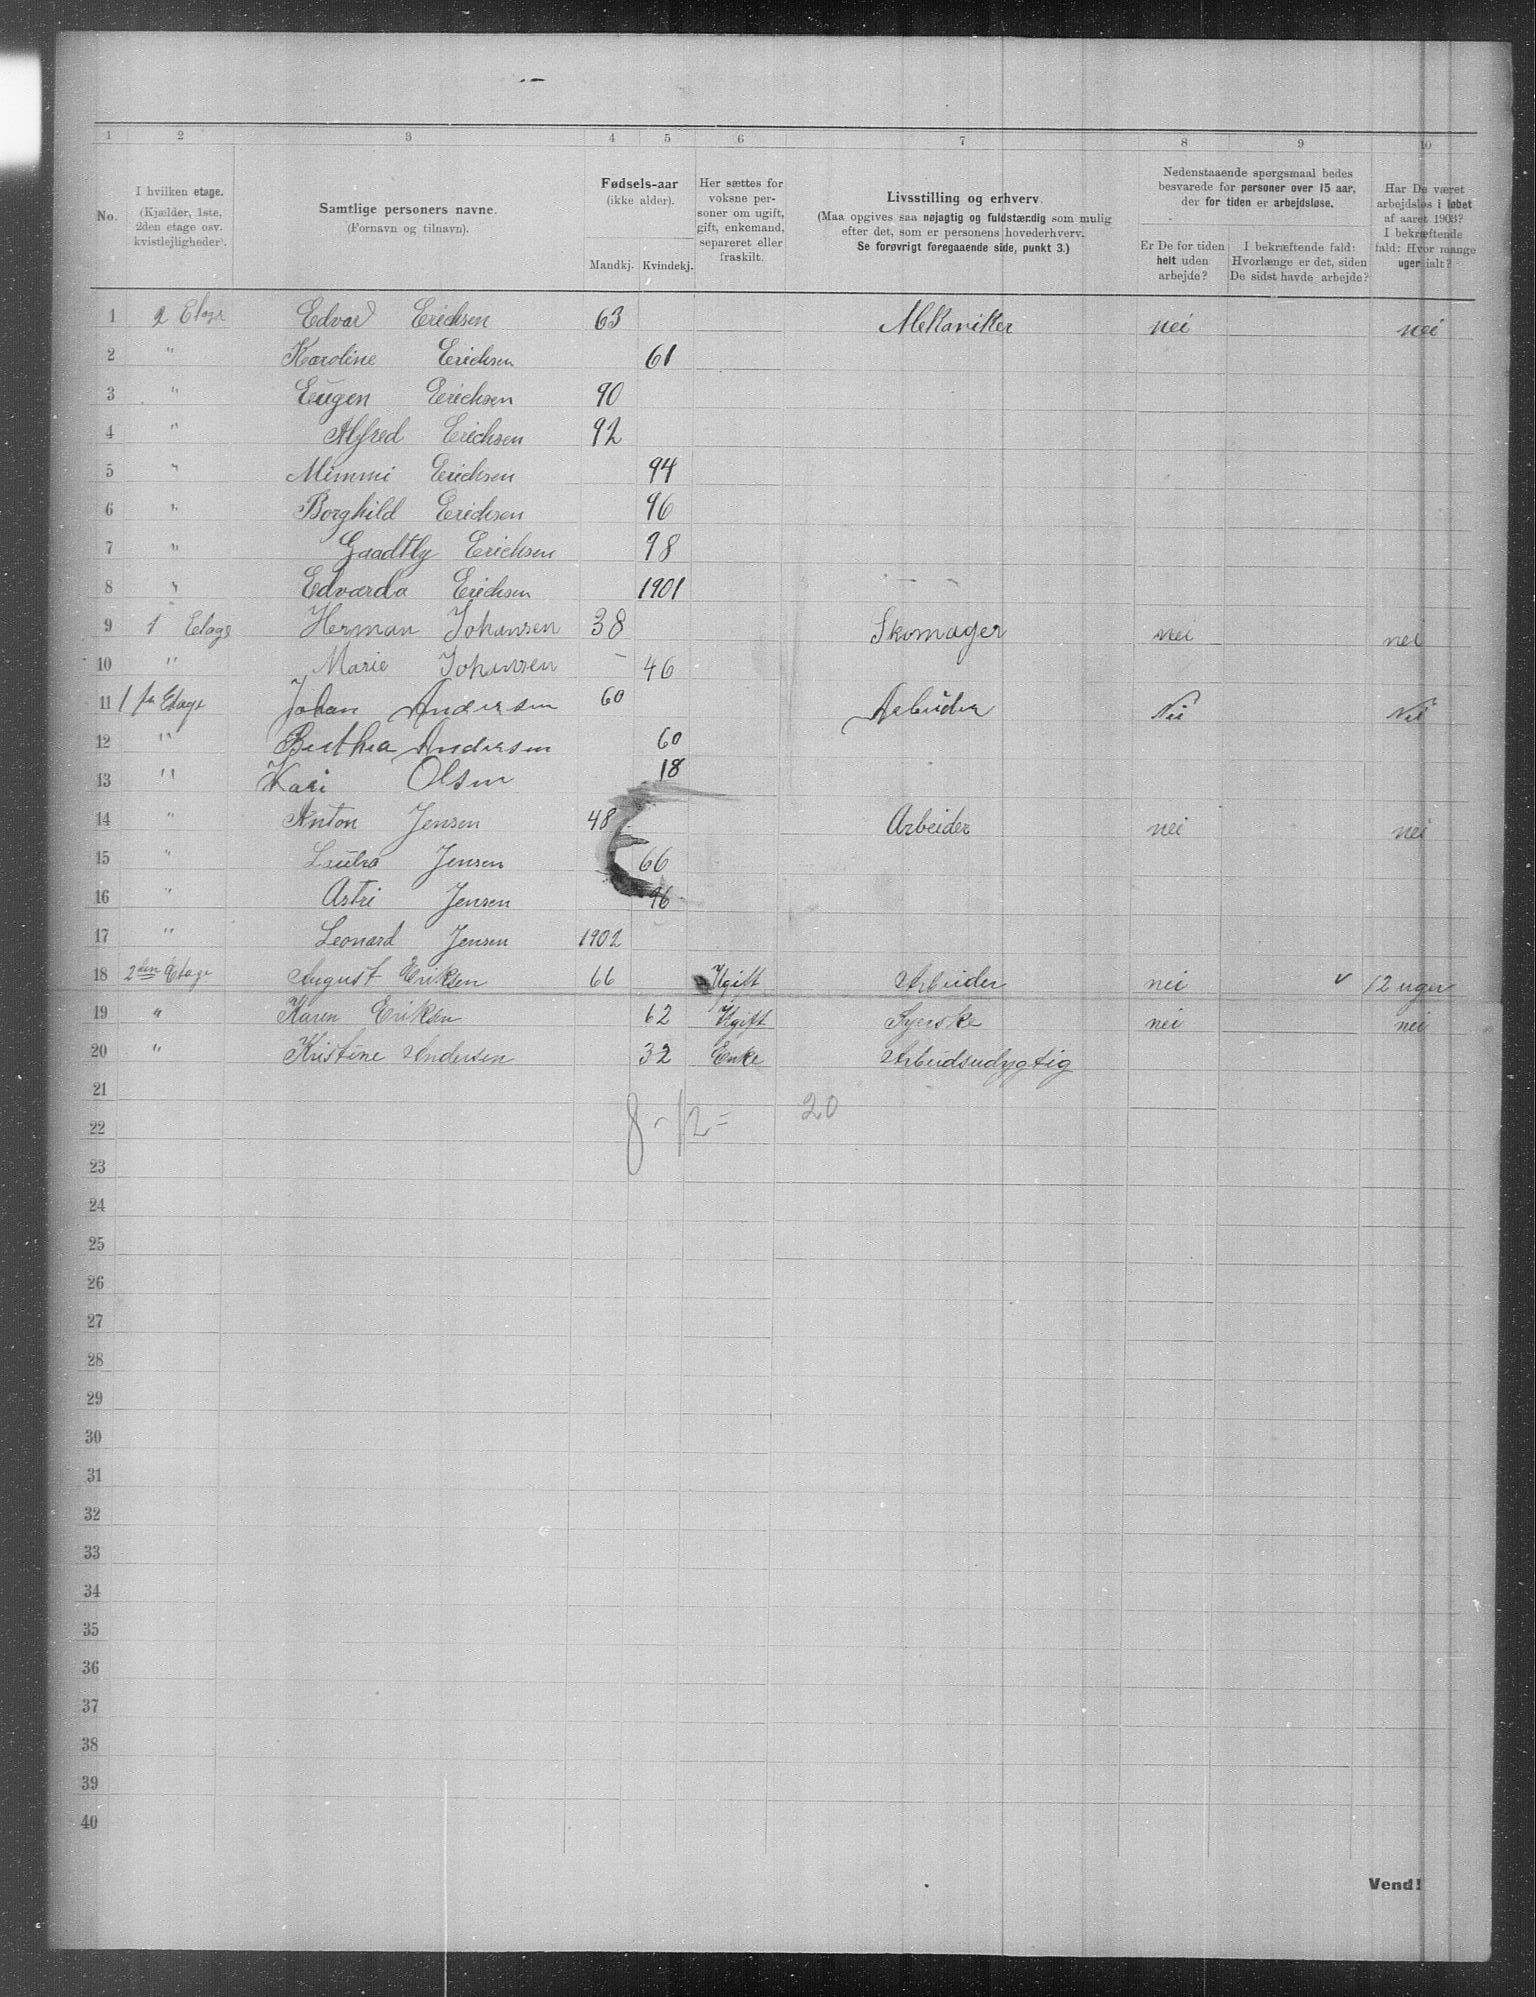 1 2 3 4 5 6 7 8 9 10
No.
I hvilken etage.
(Kjælder, 1ste,
2den etage osv.
kvistlejligheder).
Samtlige personers navne.
(Fornavn og tilnavn).
Fødsels-aar
(ikke alder).
Mandkj. Kvindekj.
Her sættes for
voksne per-
soner om ugift,
gift, enkemand,
separeret eller
fraskilt.
Livsstilling og erhverv.
(Maa opgives saa nøjagtig og fuldstærdig som mulig
efter det, som er personens hovederhverv.
Se forøvrigt foregaaende side, punkt 3.)
Nedenstaaende spørgsmaal bedes
besvarede for personer over 15 aar,
der for tiden er arbejdsløse.
Er De for tiden
helt uden
arbejde?
I bekræftende fald:
Hvorlænge er det, siden
De sidst havde arbejde?
Har De været
arbejdsløs i løbet
af aaret 1903?
I bekræftende
fald: Hvor mange
uger ialt?
1 2 Etage Edvard Erichsen 63 Mekaniker nei nei
2 " Karoline Erichsen 61
3 " Eugen Erichsen 90
4 " Alfred Erichsen 92
5 " Mimmi Erichsen 94
6 " Borghild Erichsen 96
7 " Erichsen 98
8 " Edvarda Erichsen 1901
9 1 Etage Herman Johansen 38 Skomager nei nei
10 " Marie Johansen 46
11 1 Etage Johan Andersen 60 Arbeider Nei Nei
12 " Berthea Andersen 60
13 " Kari Olsen 18
14 " Anton Jensen 48 Arbeider nei nei
15 " Jensen 66
16 " Astri Jensen 96
17 " Leonard Jensen 1902
18 2den Etage August Eriksen 66 Ugift Arbeider nei v 12 uger
19 " Karen Eriksen 62 Ugift Syerske nei nei
20 " Kristine Andersen 32 Enke Arbeidsudygtig
21
8-12= 20
22
23
24
25
26
27
28
29
30
31
32
33
34
35
36
37
38
39
40
Vend!